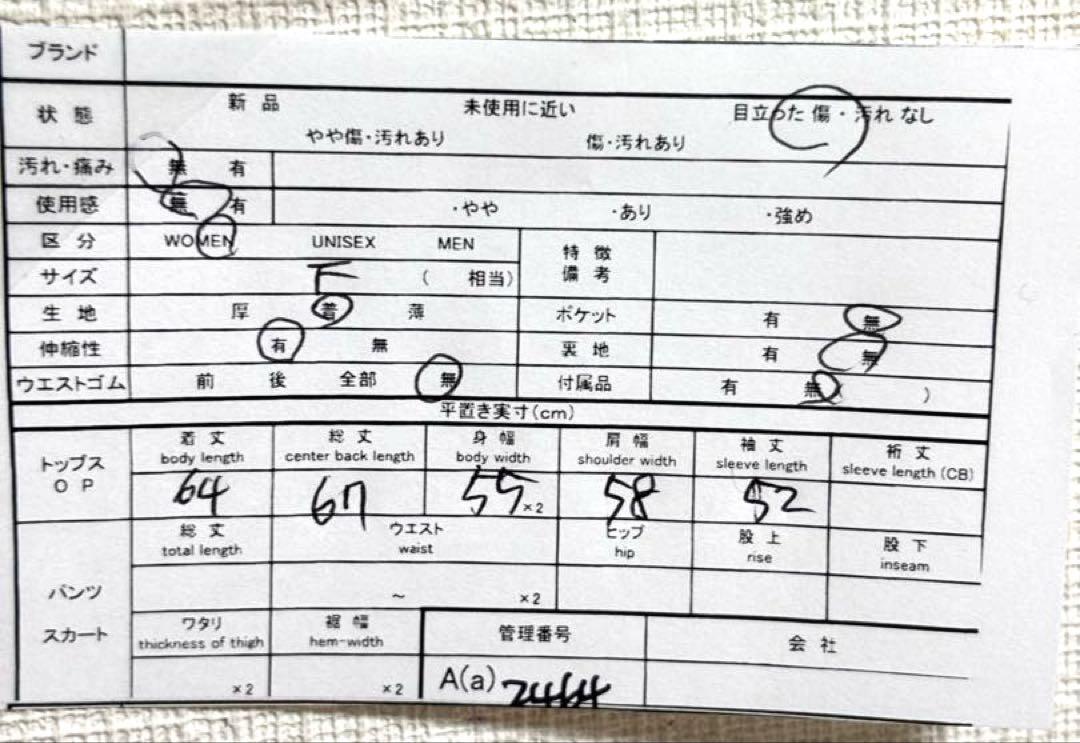 ブランド
状態 新品 未使用に近い 目立った傷・汚れなし
やや傷・汚れあり 傷・汚れあり
汚れ・痛み 無 有
使用感 無 有 ・やや ・あり ・強め
区分 WOMEN UNISEX MEN 特徴
備考
サイズ F ( 相当)
生地 厚 着 薄 ポケット 有 無
伸縮性 有 無 裏地 有 無
ウエストゴム 前 後 全部 無 付属品 有 無 )
平置き実寸(cm)
トップス
OP
着丈 総丈 身幅 肩幅 袖丈 裄丈
body length center back length body width shoulder width sleeve length sleeve length (CB)
64 67 55 ×2 58 52
総丈 ウエスト ヒップ 股上 股下
total length waist hip rise inseam
パンツ ～ ×2
スカート
ワタリ 裾幅 管理番号 会社
thickness of thigh hem-width
×2 ×2 A(a) 2464